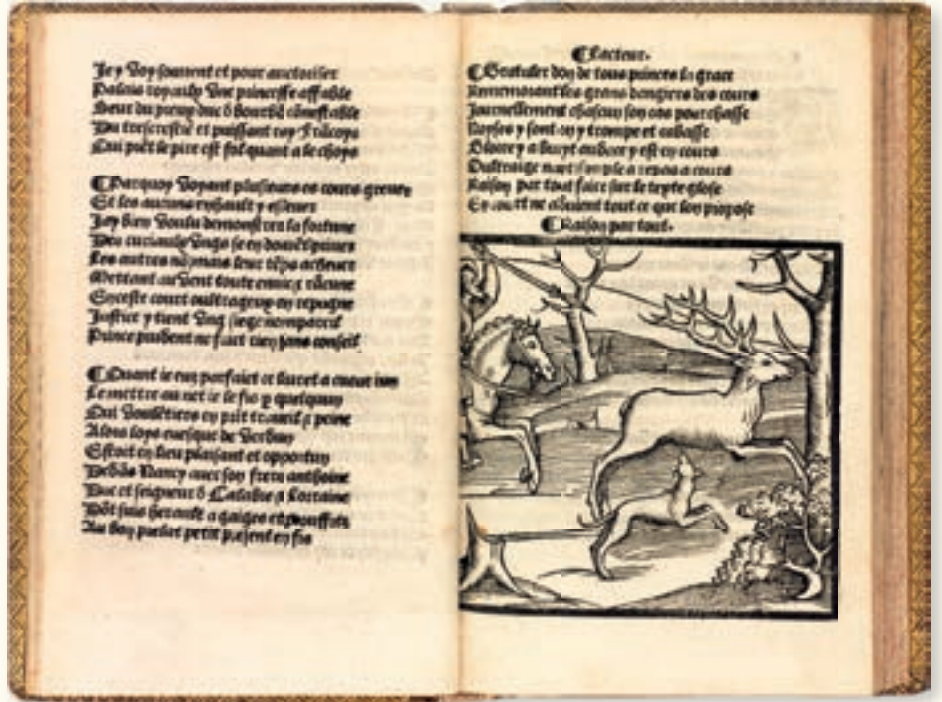 Jey voy souvent et pour auctoriser
Palais royaulx une princesse affable
Seur du preux duc d bourbõ cõnestable
Du trescrestiẽ et puissant roy Frãcoys
Qui prẽt le pire est fol quant a le choys
Parquoy voyant plusieurs es cours grever
Et les aucuns en hault y eslever
Jay bien voulu demonstrer la fortune
Des curiaulx ungs se en
Les autres nõ mais leur tẽps
Mettant au vent toute envie &
En ceste court oultrageux on repugne
Justice y tient ung siege nompareil
Prince prudent ne fait rien sans conseil
Quant ie euz parfaict ce livret a cueur
Le mettre au net ie le fis p quelquun
Qui voulẽtiers en prit travail & peine
Alors loys evesque de Verdun
Estoit en lieu plaisant et opportun
Dehãs Nancy avec son frere anthoine
Duc et seigneur d Calabre & Lorraine
Dõt suis herault a gaiges et
Au bon prelat petit present en fis
Lacteur.
Gratuler doy de tous princes la grace
Rememorant les grans dangiers des cours
Journellement chascun son cas pourchasse
Noyses y sont on y trompe et cabasse
Gloire y a bruyt y est en cours
Oultraige nuyt simple a repas a cours
Raison par tout faict sur le texte glose
En court ne advient tout ce que lon propose
Raison par tout.